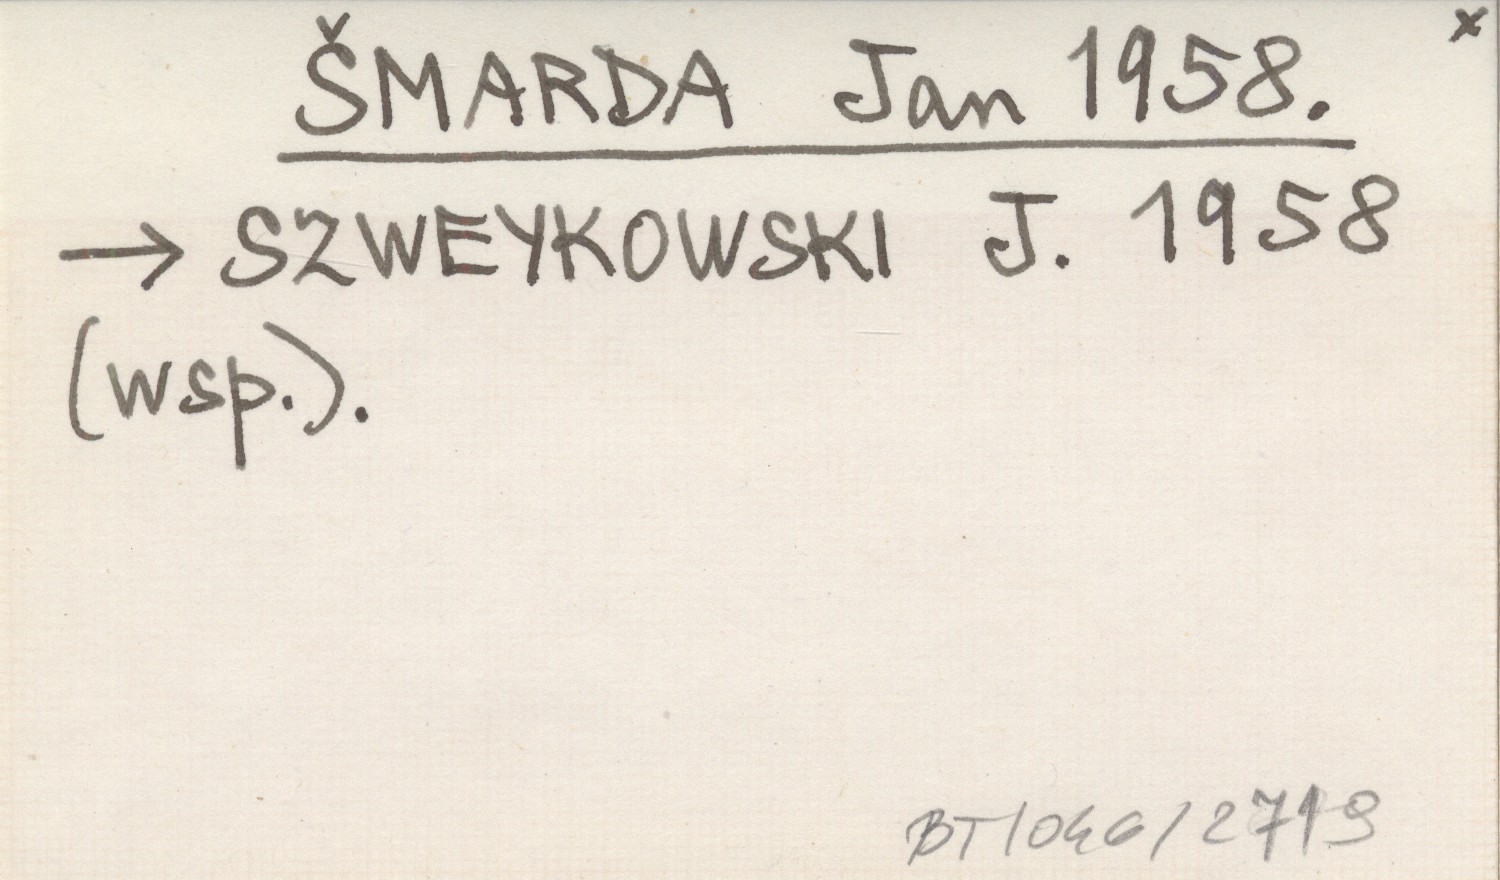 x
ŠMARDA Jan 1958.
→ SZWEYKOWSKI J. 1958
(wsp.).
BT/046/2719